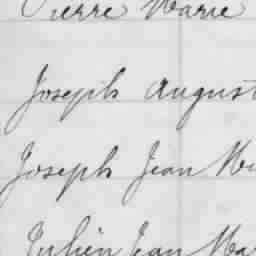 Pierre Marie
Joseph August
Joseph Jean Ma
Julien Jean Ma